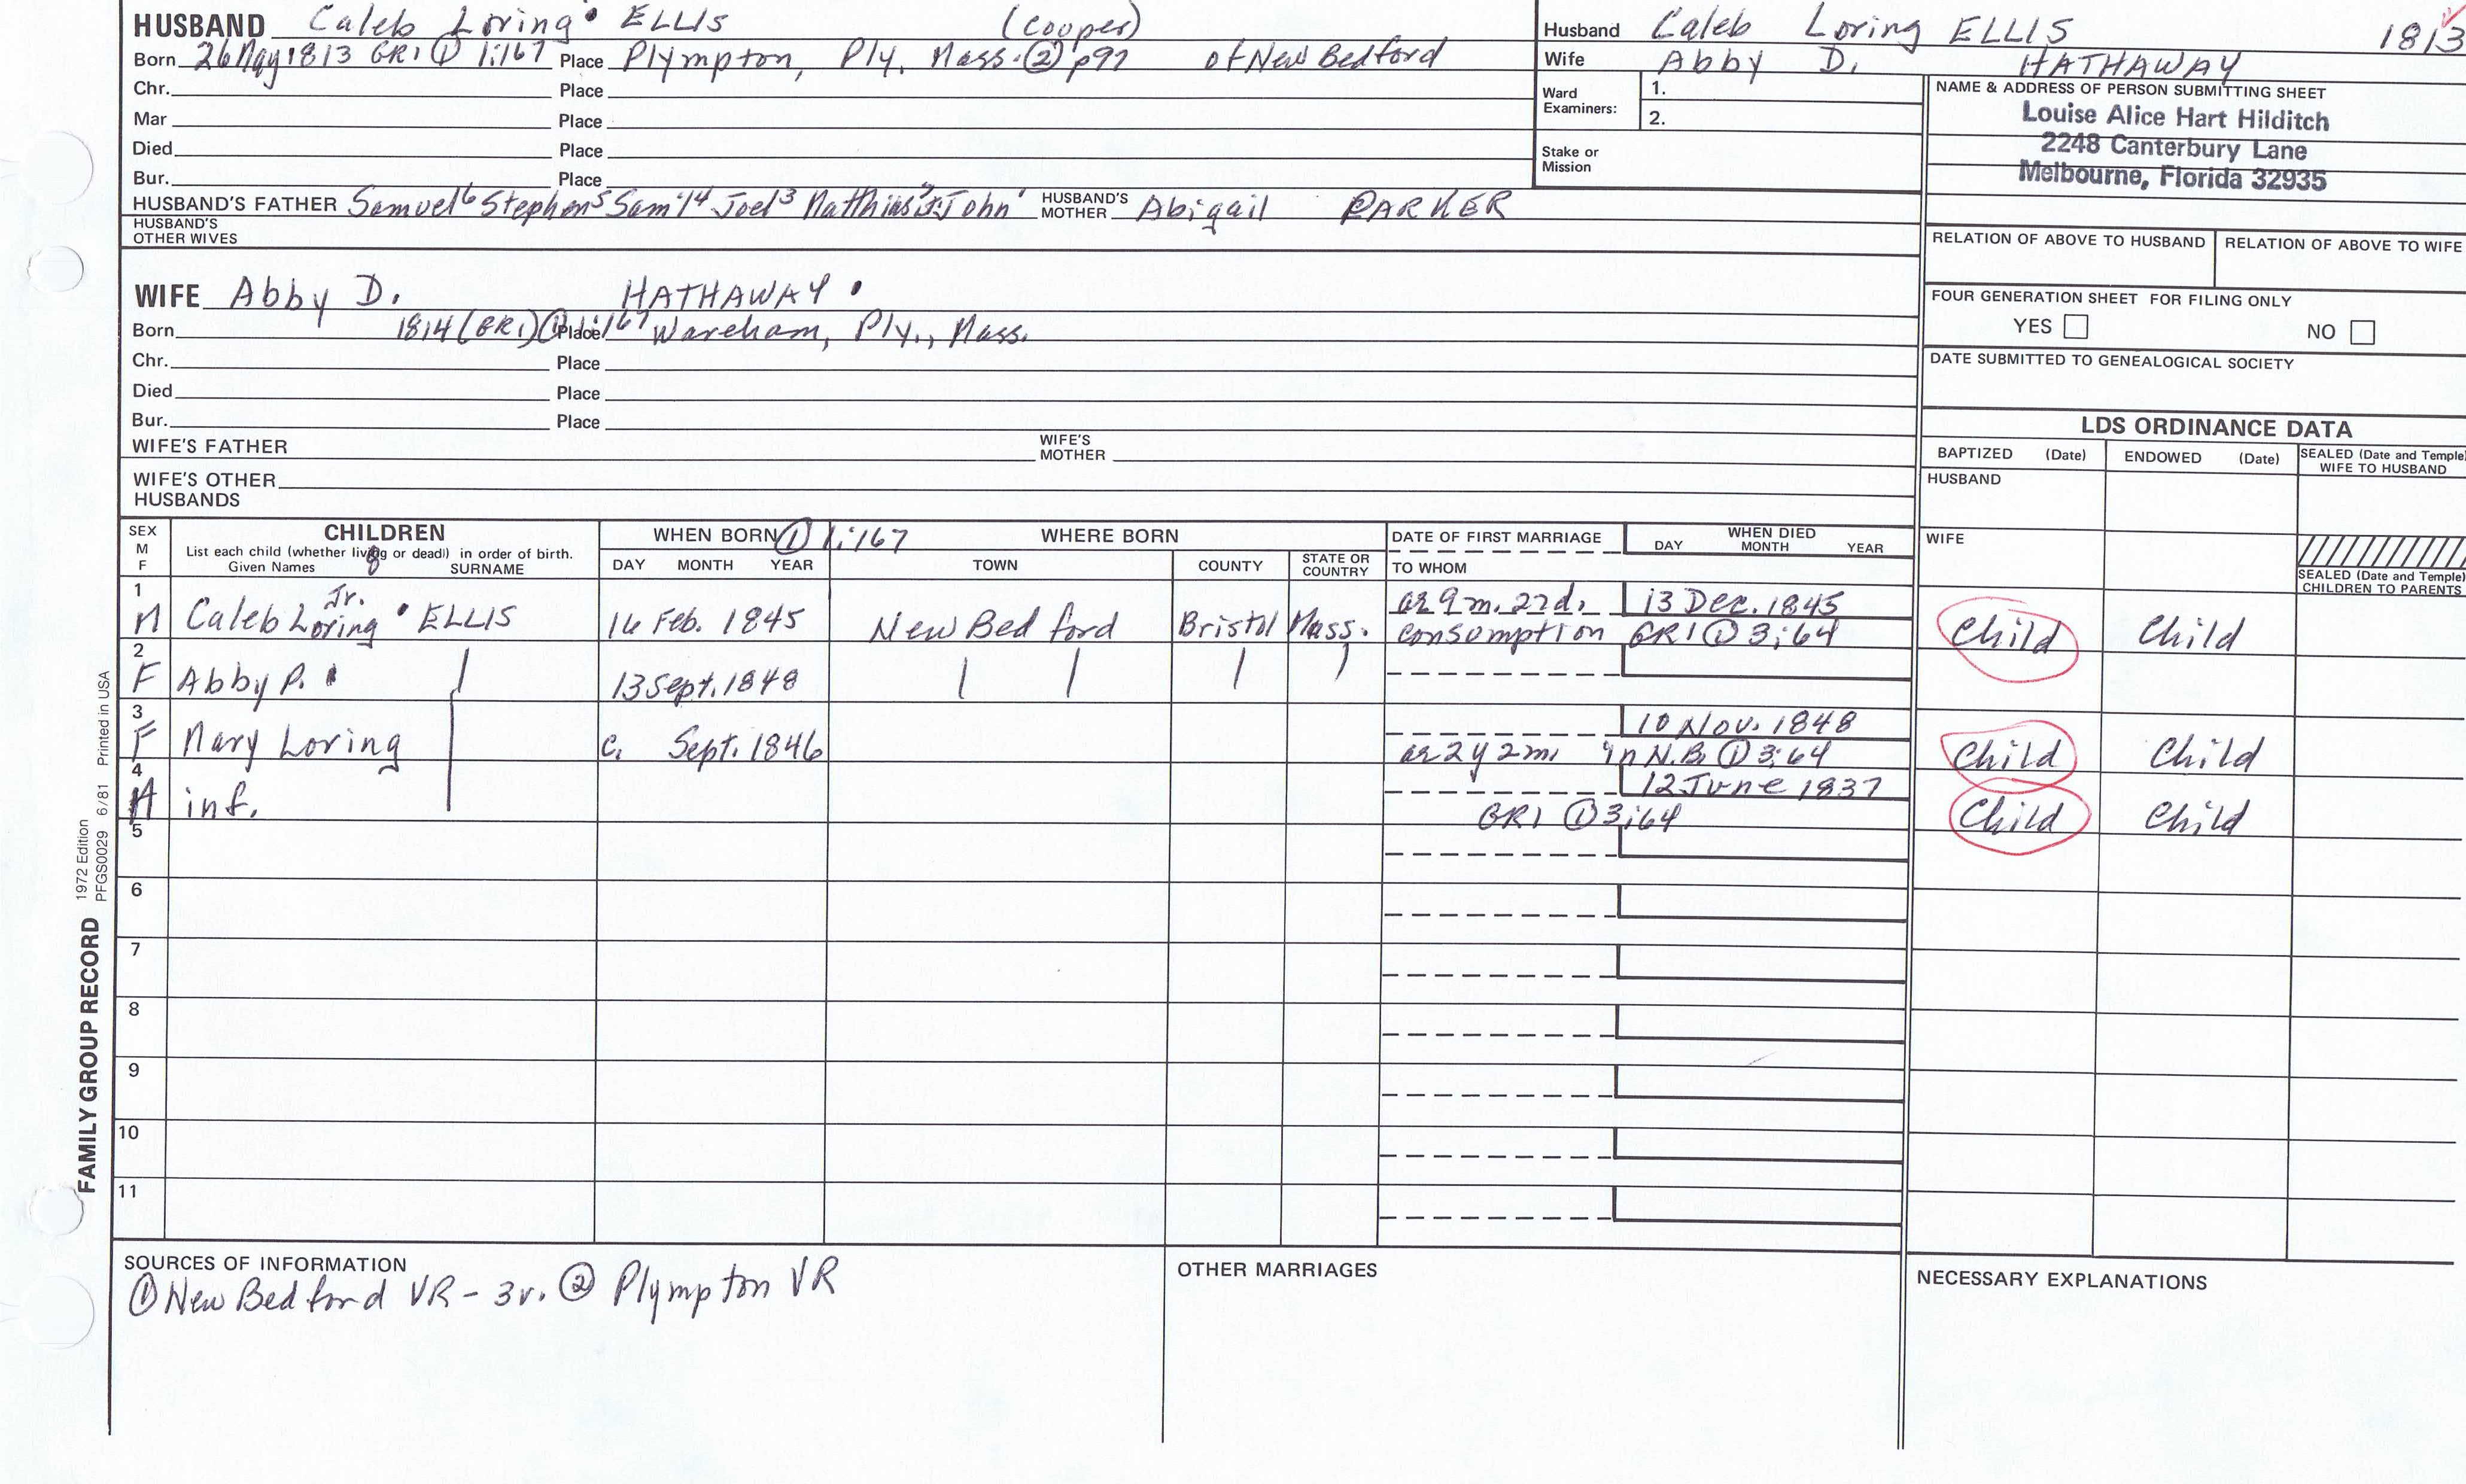 HUSBAND Caleb Loring ELLIS (Cooper)
Born 26 May 1813 GR1 ① 1:167 Place Plympton, Ply. Mass. ② p97 of New Bedford
Chr. Place
Mar Place
Died Place
Bur. Place
HUSBAND'S FATHER Samuel⁶ Stephen⁵ Sam'l⁴ Joel³ Matthias² John¹ HUSBAND'S MOTHER Abigail PARKER
HUSBAND'S OTHER WIVES
Husband Caleb Loring ELLIS 1813
Wife Abby D. HATHAWAY
Ward Examiners: 1.
2.
Stake or Mission
NAME & ADDRESS OF PERSON SUBMITTING SHEET
Louise Alice Hart Hilditch
2248 Canterbury Lane
Melbourne, Florida 32935
RELATION OF ABOVE TO HUSBAND RELATION OF ABOVE TO WIFE
FOUR GENERATION SHEET FOR FILING ONLY
YES NO
DATE SUBMITTED TO GENEALOGICAL SOCIETY
WIFE Abby D. HATHAWAY
Born 1814 (GR1) ① 1:167 Place Wareham, Ply., Mass.
Chr. Place
Died Place
Bur. Place
WIFE'S FATHER WIFE'S MOTHER
WIFE'S OTHER HUSBANDS
LDS ORDINANCE DATA
BAPTIZED (Date) ENDOWED (Date) SEALED (Date and Temple) WIFE TO HUSBAND
HUSBAND
WIFE
SEALED (Date and Temple) CHILDREN TO PARENTS
SEX M F CHILDREN WHEN BORN ① 1:167 WHERE BORN DATE OF FIRST MARRIAGE WHEN DIED
List each child (whether living or dead) in order of birth.
Given Names SURNAME DAY MONTH YEAR TOWN COUNTY STATE OR COUNTRY TO WHOM DAY MONTH YEAR
1 M Caleb Loring Jr. ELLIS 16 Feb. 1845 New Bedford Bristol Mass. ae 9 m. 27 d. 13 Dec. 1845
consumption GR1 ① 3:64 Child Child
2 F Abby P. 13 Sept. 1848
3 F Mary Loring c. Sept. 1846 10 Nov. 1848
ae 2 y 2 m. in N.B. ① 3:64 Child Child
4 inf. 12 June 1837
GR1 ① 3:64 Child Child
5
6
7
8
9
10
11
SOURCES OF INFORMATION
① New Bedford VR - 3v. ② Plympton VR
OTHER MARRIAGES
NECESSARY EXPLANATIONS
FAMILY GROUP RECORD
1972 Edition
PFGS0029 6/81 Printed in USA